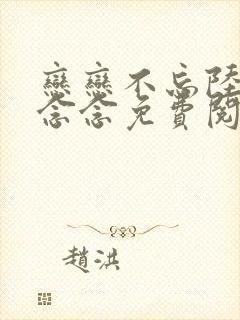 戀戀不忘陸
念念免費閱
趙洪